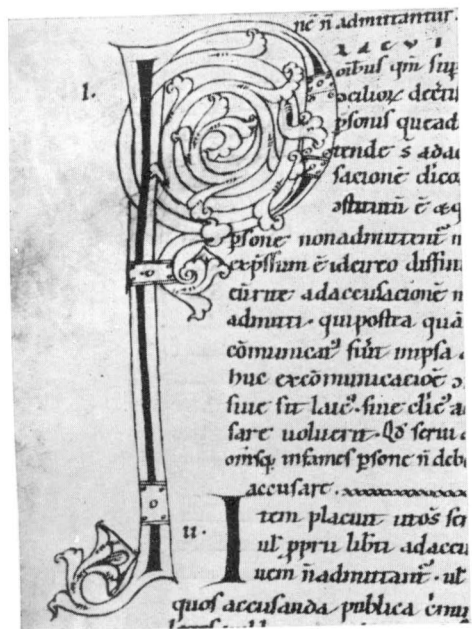 nē n̄ admittantur.
P LACUI
I. oībus qm̄ sup
decreti
psonis quead
tende s̄ adac
sacionē dico
ē
psone nonadmittent n
exp̄ssum ē idcirco diffini
adaccusacionē n
admitti. qui postea quā
cōmunicat᾽ fūit in ipsa
huc excōmunicaciōē
siue sit laic᾽. siue clic᾽ a
sare uoluerit. Qd̄ serui
om̄sq infames p̄sone n̄ deb
accusare.
II. Item placuit ut os̄ ser
ul᾽ ppru lib̄ti adaccu
n̄admittant᾽. ul᾽
quos accusanda publica c̄mi